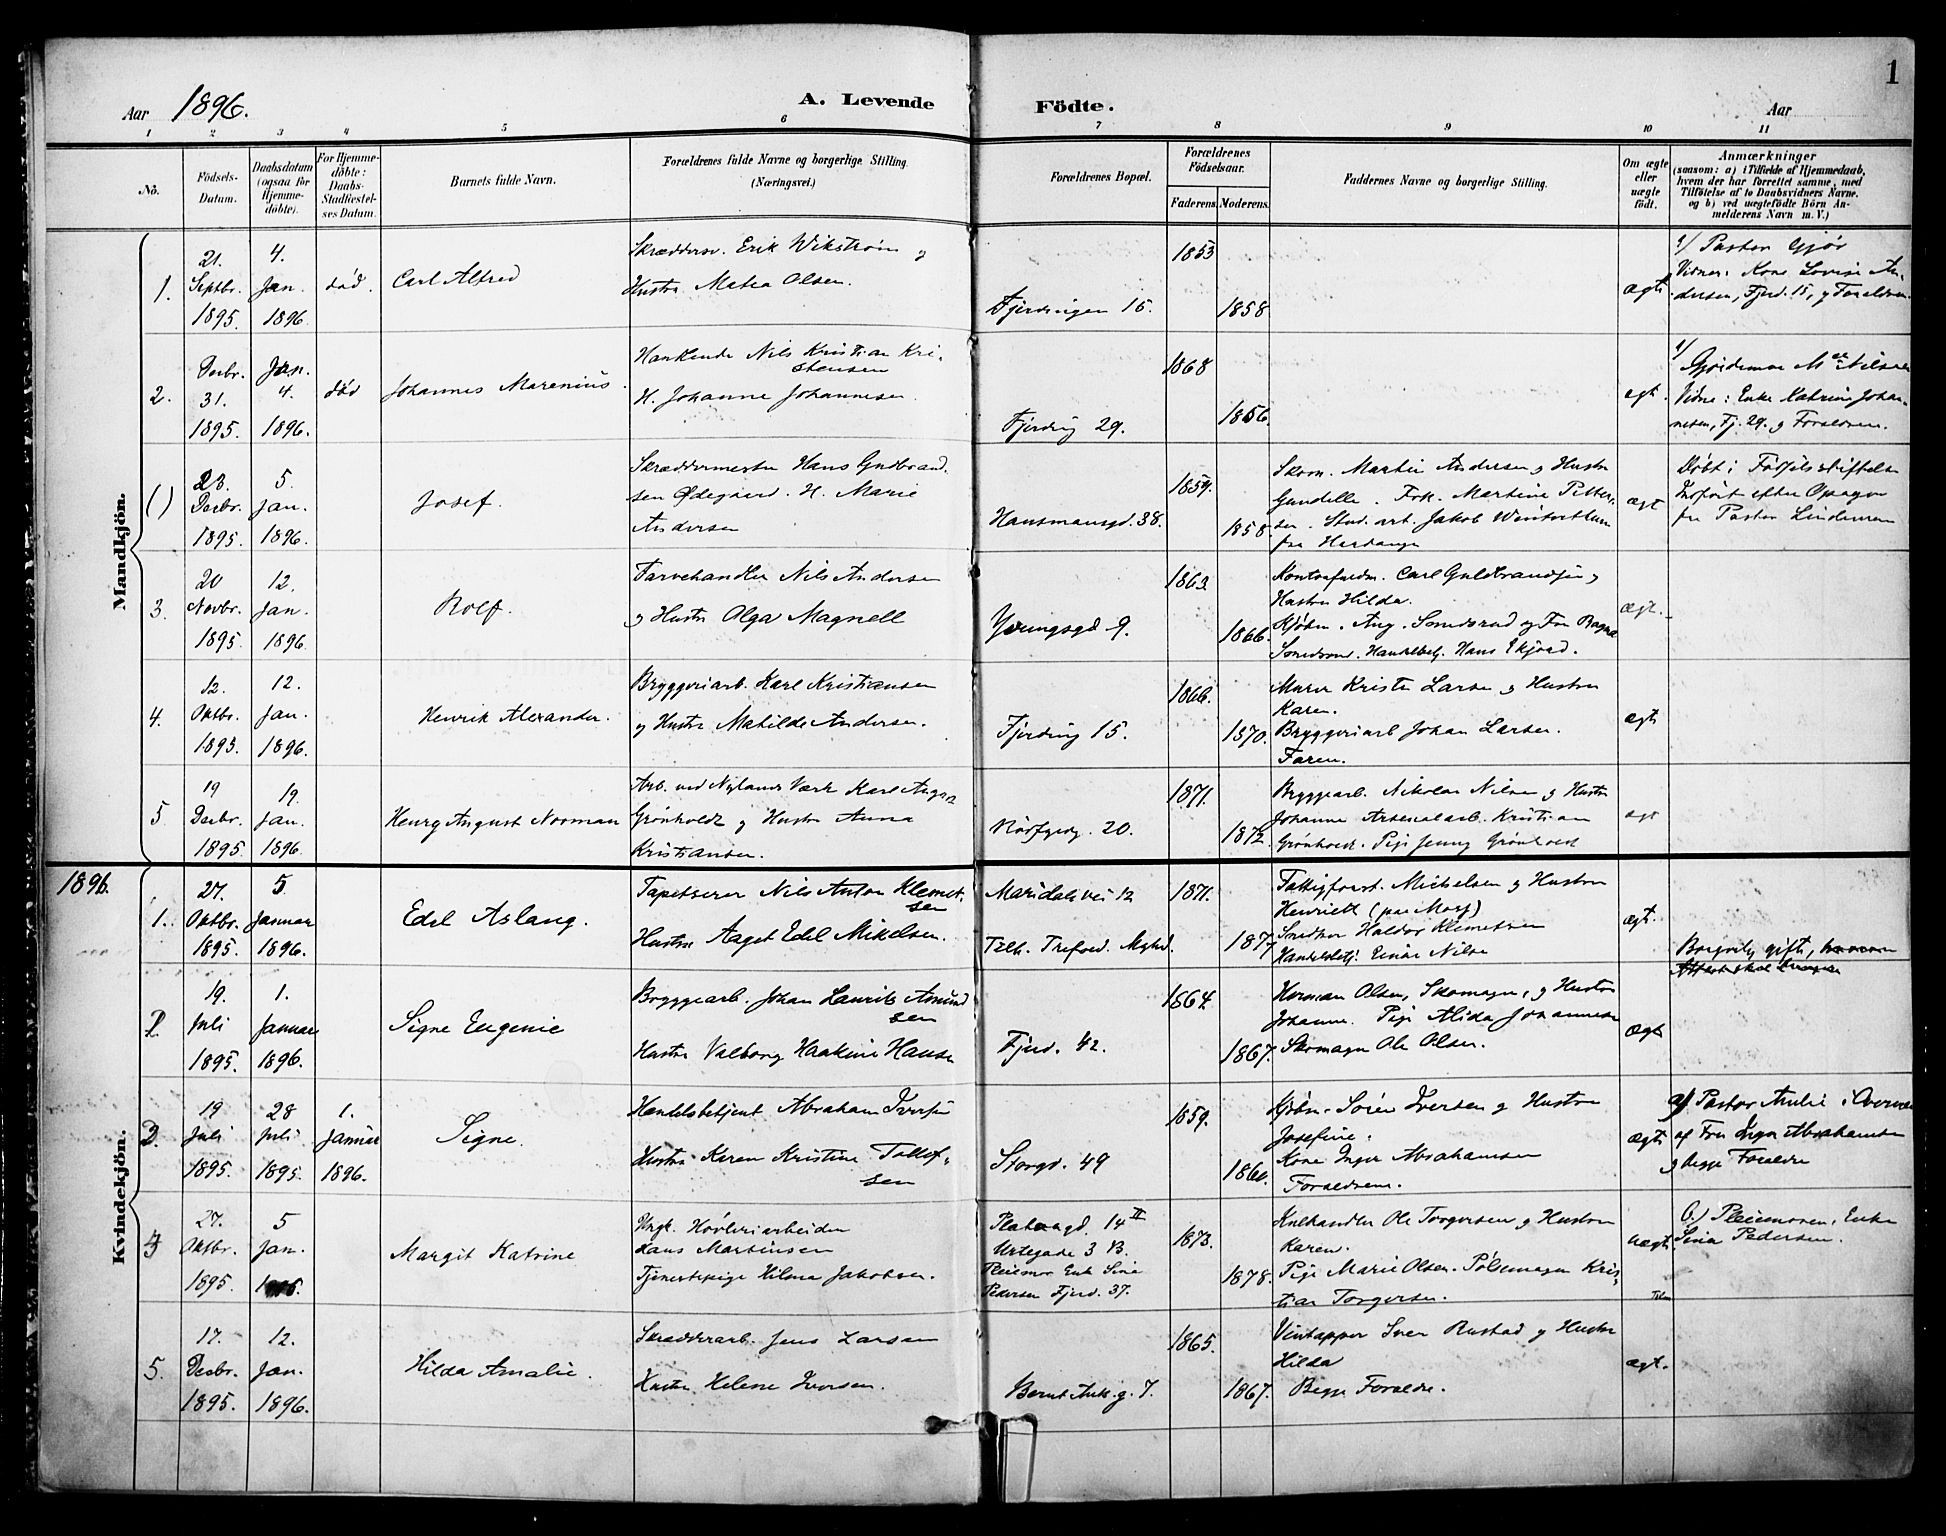 1
Aar 1896.
A. Levende Födte.
Aar
1 2 3 4 5 6 7 8 9 10 11
No.
Födsels-Datum.
Daabsdatum (ogsaa for Hjemmedöbte).
For Hjemmedöbte: Daabs-Stadfæstelses Datum.
Barnets fulde Navn.
Forældrenes fulde Navne og borgerlige Stilling. (Næringsvei.)
Forældrenes Bopæl.
Forældrenes Födselsaar.
Faderens. Moderens.
Faddernes Navne og borgerlige Stilling.
Om ægte eller uægte födt.
Anmærkninger
(saasom: a) i Tilfælde af Hjemmedaab,
hvem der har forrettet samme, med
Tilföielse af to Daabsvidners Navne.
og b) ved uægtefödte Börn An-
melderens Navn m. V.)
Mandkjön.
1. 21. Septbr. 1895. 4. Jan. 1896. død. Carl Alfred
Skrædderm. Erik Wikstrøm og
Hustru Matea Olsen.
Fjerdingen 15. 1853 1858.
ægte
Vidner: Kone Lovise An-
dersen, Fjerd. 15, og Forældrene
2. Decbr. 31. 1895. Jan. 4. 1896. død Johannes Marenius.
Nils Kristian Kri-
stensen
H. Johanne Johannesen.
Fjerding 29. 1868 1856.
ægt.
Vidne: Enke Katrine Johan-
nesen, Fj. 29. og Forældrene.
( ) 23. Decbr. 1895. 5. Jan. 1896. Josef.
Skræddermester Hans Gudbrand-
sen Ødegaard. H. Marie
Andersen
Hausmansgd. 38. 1859. 1858.
Martin Andersen og Hustru
Gundelle. Frk. Martine Petter-
sen. Stud. art. Jakob
fra Hardanger
ægt
Døbt i Fødselsstiftelsen
Indført efter Opgave
fra Pastor Lindeman
3. 20 Novbr. 1895 12. Jan. 1896. Rolf.
Farvehandler Nils Andersen
og Hustru Olga Magnell
Youngsgd 9. 1863 1866.
Carl Guldbrandsen og
Hustru Hilda.
Kjøbm. Aug. Smedsrud og Fru Ragna
Smedsrud. Handelsbetj. Hans
ægt.
4. 12. Oktbr. 1895. 12. Jan. 1896. Henrik Alexander.
Bryggeriarb. Karl Kristiansen
og Hustru Mathilde Andersen.
Fjerding 15. 1866. 1870.
Murer Larsen og Hustru
Karen.
Bryggeriarb Johan Larsen.
Faren.
ægt
5. 19 Decbr. 1895. 19. Jan. 1896. Henry August Norman
Arb. ved Nylands Værk Karl August
Grønholdt og Hustru Anna
Kristiansen.
20. 1871. 1872.
Bryggearb. Nikolai Nilsen og Hustru
Johanne Arsenalarb. Kristian
Grønholdt. Pige Jenny Grønholdt
ægt
1896.
Kvindekjön.
1. 27. Oktbr. 1895. 5 Januar 1896. Edel Aslaug.
Tapetserer Nils Anton Klemet-
sen
Hustru Aagot Edel Mikelsen.
Maridalsvei 12 1871. 1877
Fattigforst. Michelsen og Hustru
Henriette
Smedsvend Haldor Klemetsen
Handelsbetj. Einar Nilsen
ægt.
Borgerlig gift,
2. 19. Juli 1895. 1. Januar 1896. Signe Eugenie
Bryggearb. Johan Laurits Amund
sen
Hustru Valborg Haakine Hansen
Fjerd. 42. 1864. 1867.
Herman Olsen, Skomager, og Hustru
Johanne. Pige Alida Johannesen
Skomager Ole Olsen.
ægt
3. 19 Juli 1895. 28 Juli 1895. 1. Januar 1896. Signe.
Handelsbetjent Abraham Iversen
Hustru Karen Kristine Tollef-
sen
Storgd. 49 1859. 1860.
Kjøbm. Sören Iversen og Hustru
Josefine.
Kone Inger Abrahamsen
Forældrene.
ægt
af Fru Inger Abrahamsen
og begge Forældre
4 27. Oktbr. 1895. 5 Jan. Margit Katrine
Ungk. Høvleriarbeider
Hans Martinsen
Tjenestepige Hilma Jakobsen.
14 II
Urtegade 3 B.
Pleiemor Enke Sina
Pedersen Fjerd. 37. 1873. 1878.
Kulhandler Ole Torgersen og Hustru
Karen.
Pige Marie Olsen. Pølsemager Kris-
tian Torgersen.
uægt
b.) Pleiemoren, Enke
Sina Pedersen.
5. 17. Decbr. 1895. 12. Jan. 1896. Hilda Amalie.
Skrædderarb. Jens Larsen
Hustru Helene Iversen.
Bernt Ank. g. 7. 1865. 1867.
Vintapper Iver Rustad og Hustru
Hilda
Begge Forældre.
ægt.